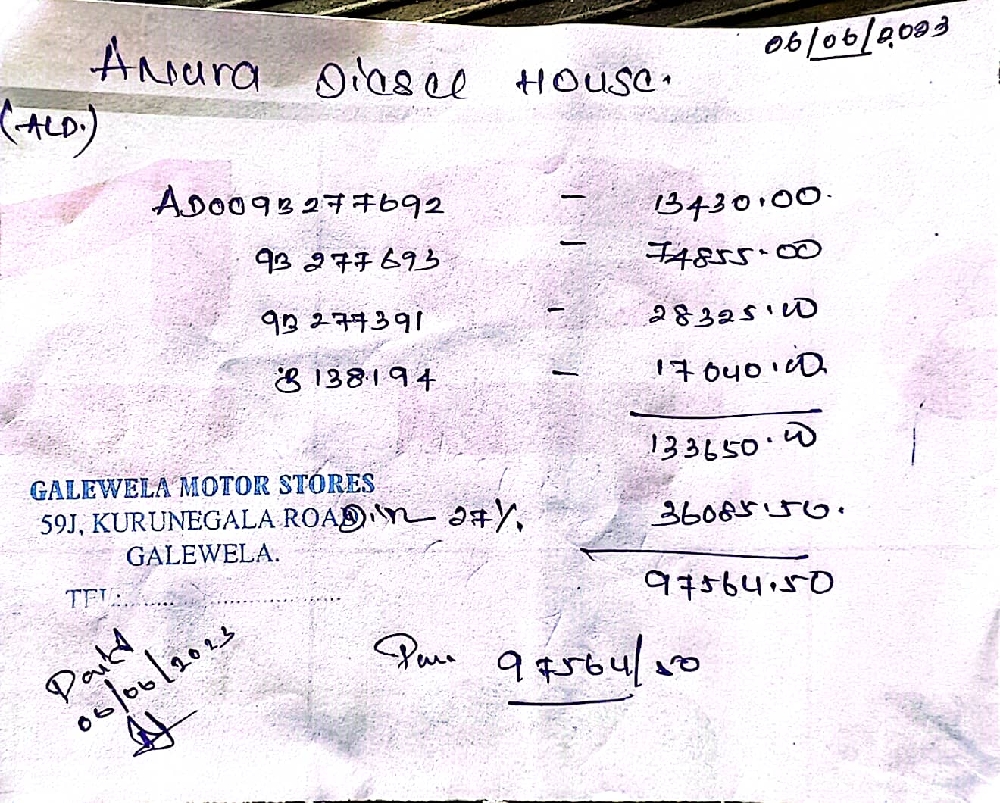 06/06/2023
Anura Diesel House.
(ALD.)
AD0093277692 - 13430.00.
93277693 - 74855.00
93277391 - 28325.00
138194 - 17040.00
133650.00
GALEWELA MOTOR STORES
59J, KURUNEGALA ROAD, 27%. 36085.50.
GALEWELA.
97564.50
TEL:
Paid
06/06/2023
97564/50